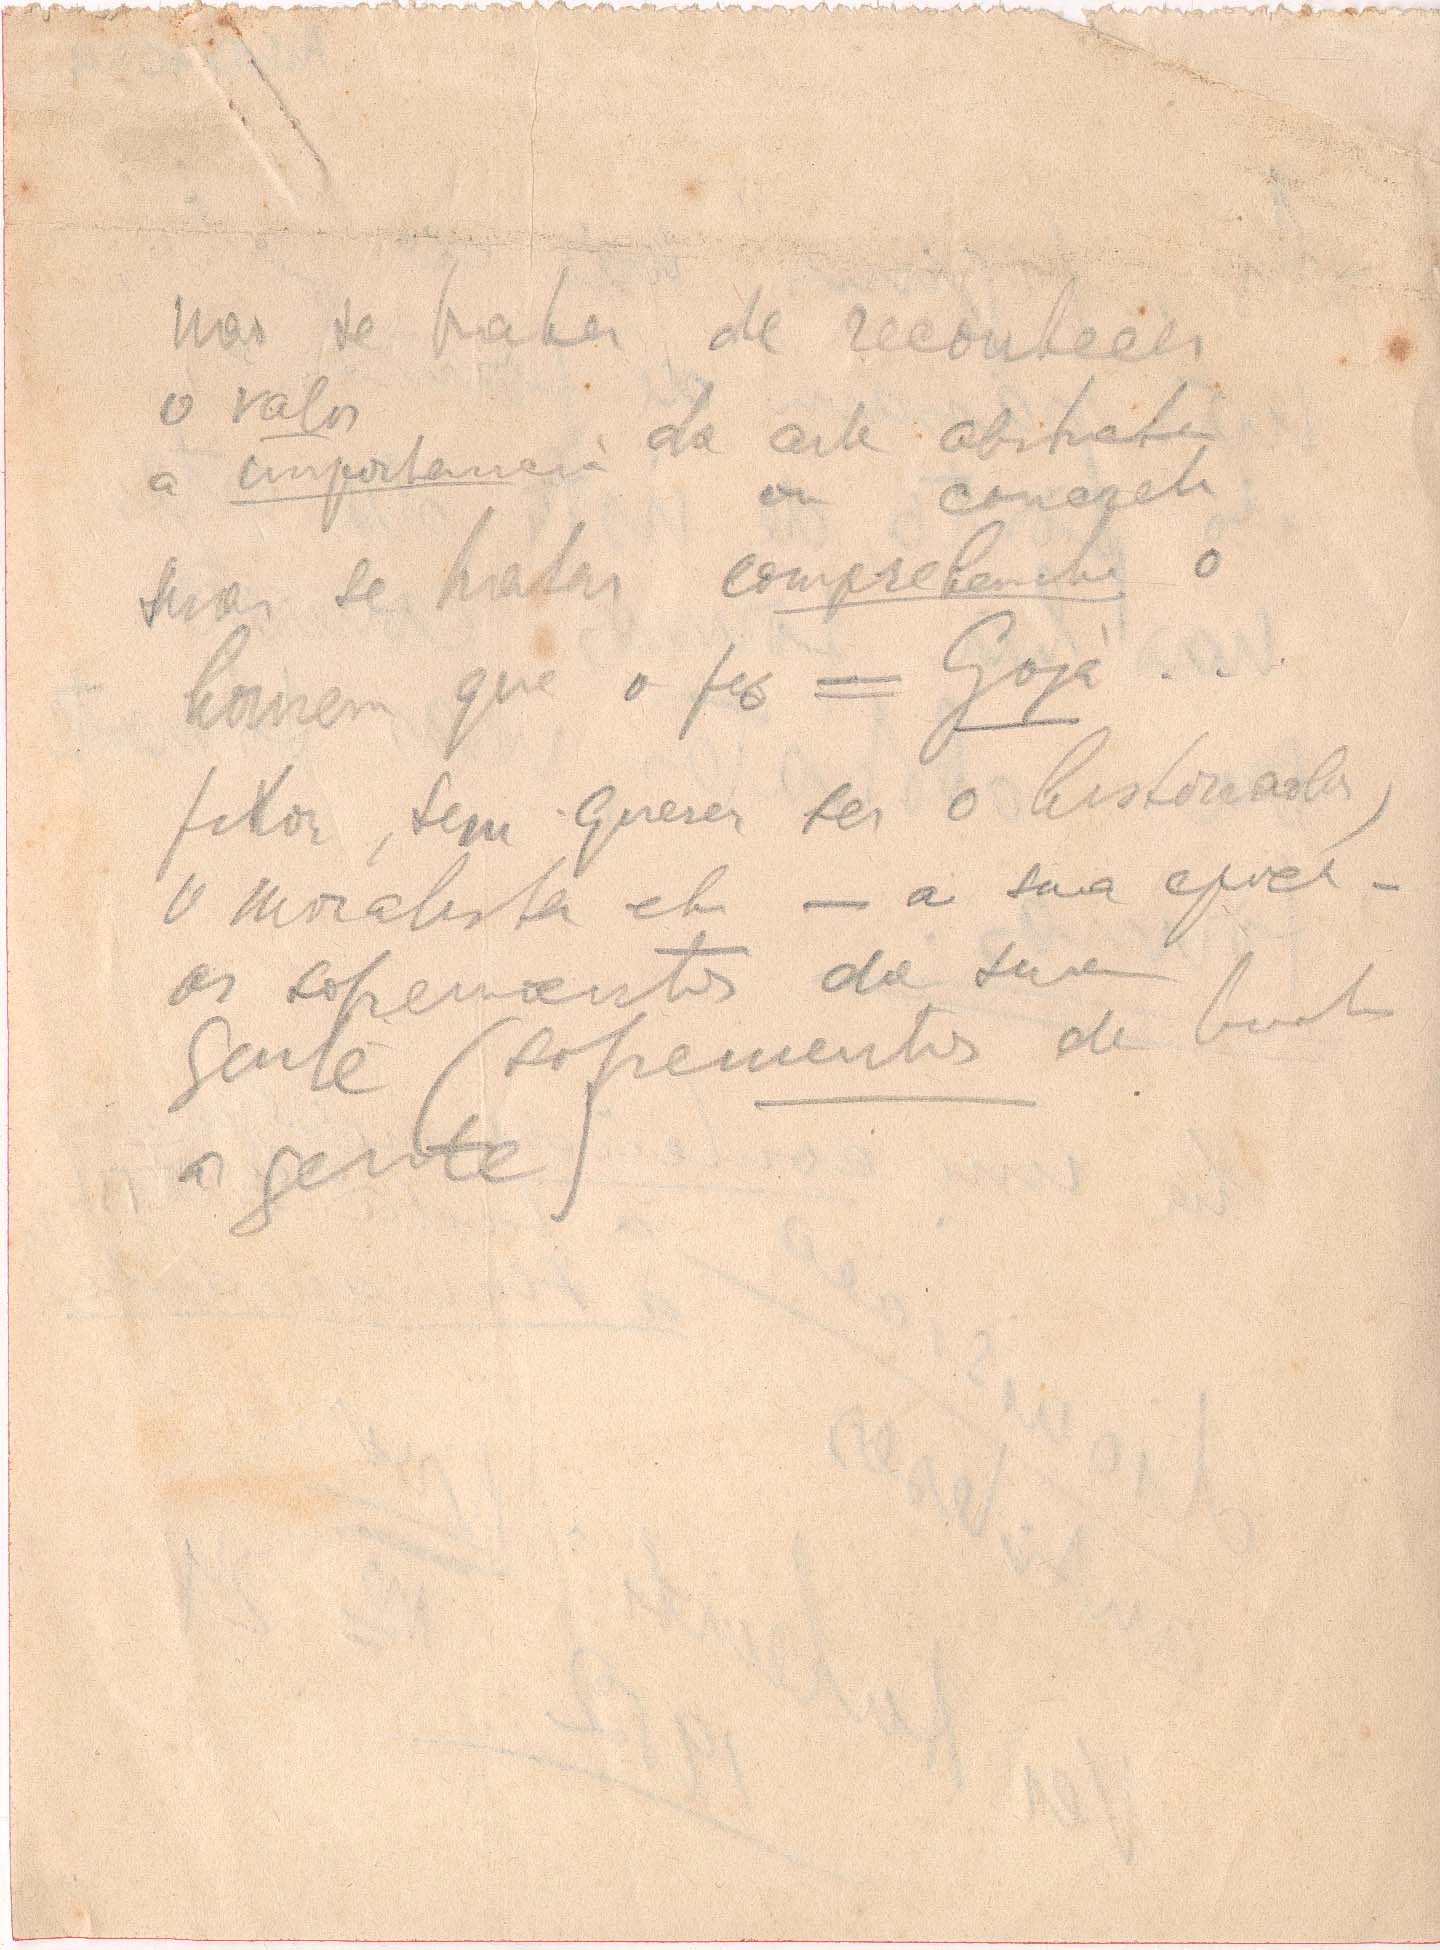 nao se trata, de reconhecer
o valor
a importancia da arte abstrata
ou concreta
mas se tratar comprehender o
homem que o fez = Goja ...
fixou, sem querer ser o historiador,
o moralista etc — a sua epoca -
os sofrementos da sua
gente (sofrementos de
a gente)